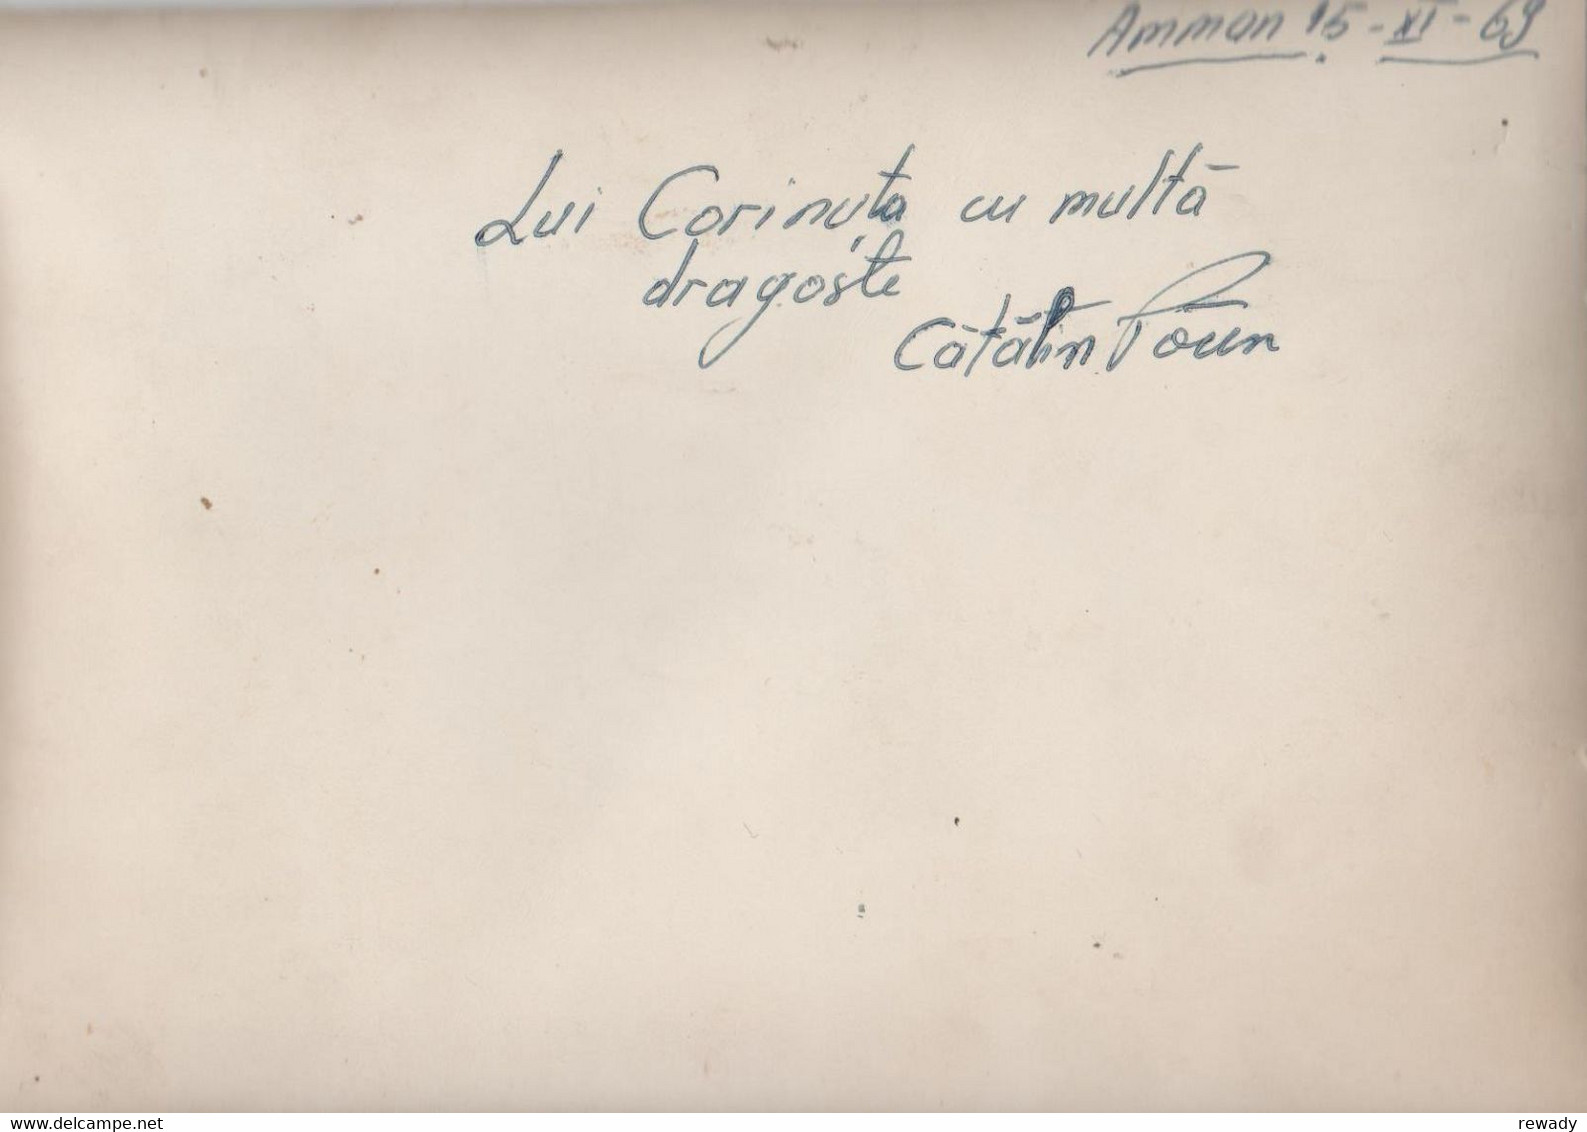 Amman 15-XI-69
Lui Corinuța cu multă
dragoste
Cătălin Păun
www.delcampe.net
rewady